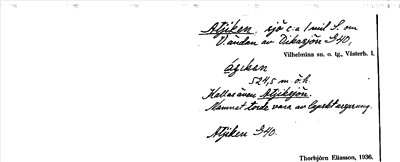 Atjiken, sjö c:a 1 mil S. om
V. ändan av Dikasjön G40,
Vilhelmina sn. o. tg., Västerb. l.
átjkan
524,5 m ö. h.
Kallas även Atjiksjön.
Namnet torde vara av lapskt ursprung.
Atjiken G40.
Thorbjörn Eliasson, 1936.